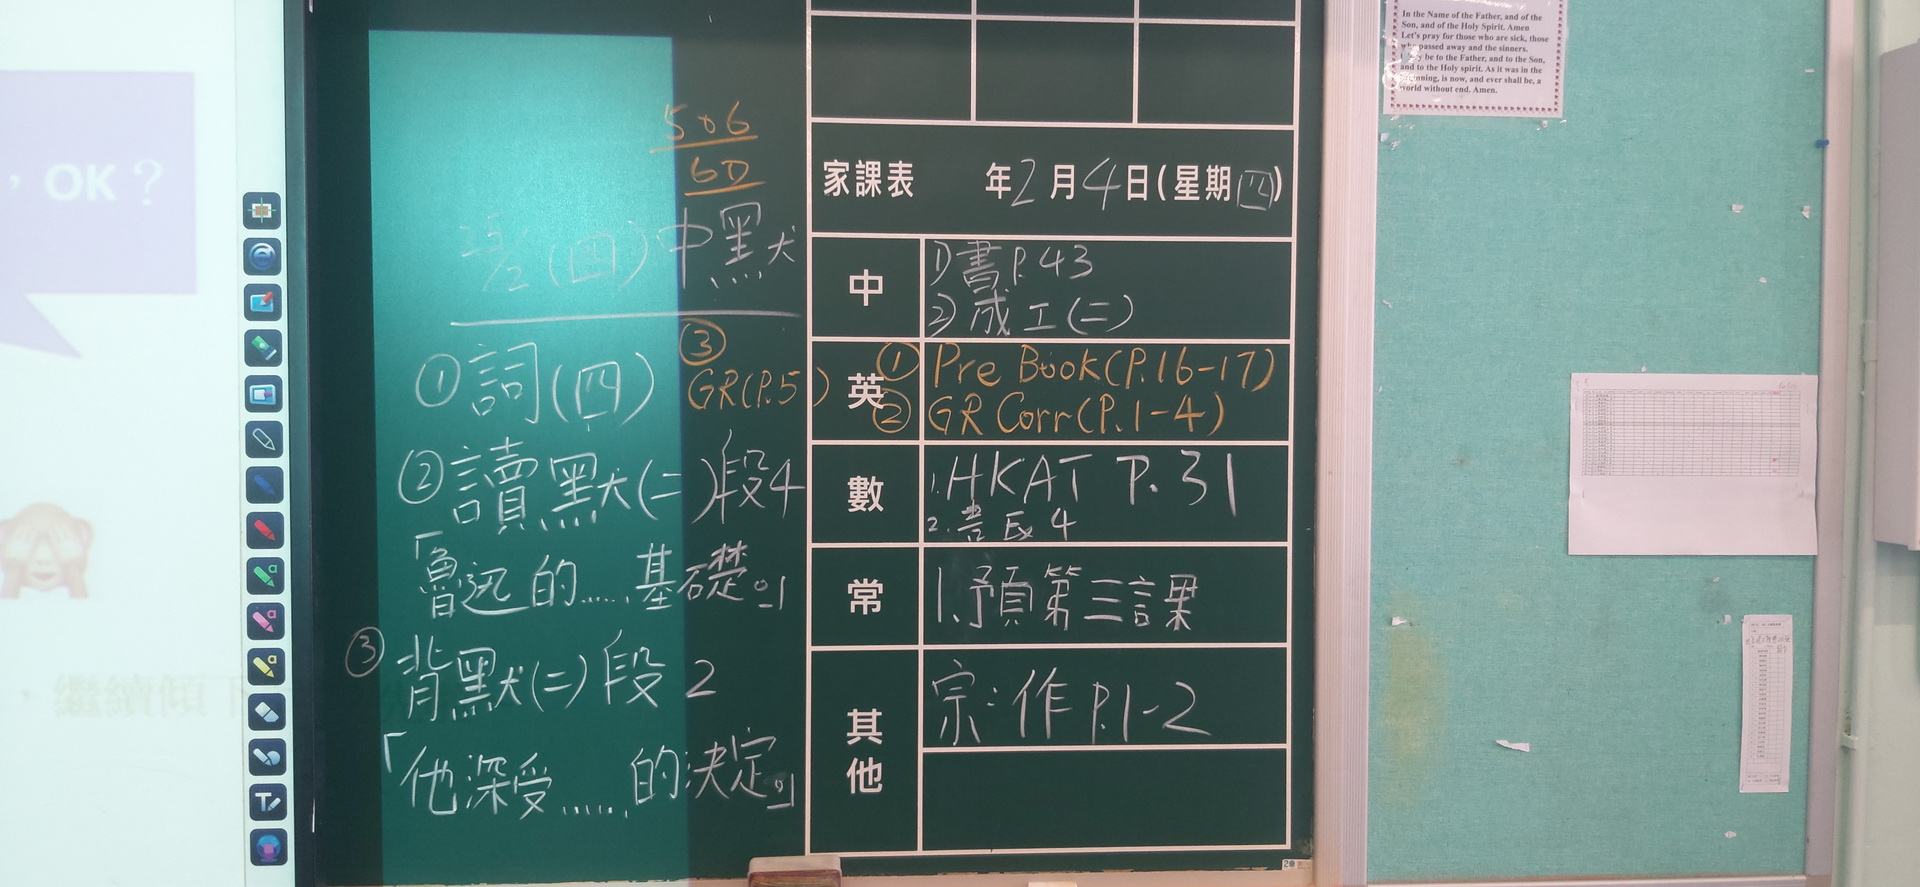 In the Name of the Father, and of the
Son, and of the Holy Spirit. Amen
Let's pray for those who are sick, those
who passed away and the sinners.
be to the Father, and to the Son,
and to the Holy spirit. As it was in the
is now, and ever shall be, a
world without end. Amen.
，OK？
，繼續傾
506
60
(四)中默
①詞(四)
②讀默(二)段4
「魯迅的……基礎。」
③背默(二)段2
「他深受……的決定。」
家課表 年2月4日(星期四)
中
1)書P.43
2)成工(二)
英
①Pre Book(P.16-17)
②GR Corr(P.1-4)
③GR(P.5)
數
1.HKAT P.31
2.書Ex 4
常
1.預第三課
其他
宗:作P.1-2